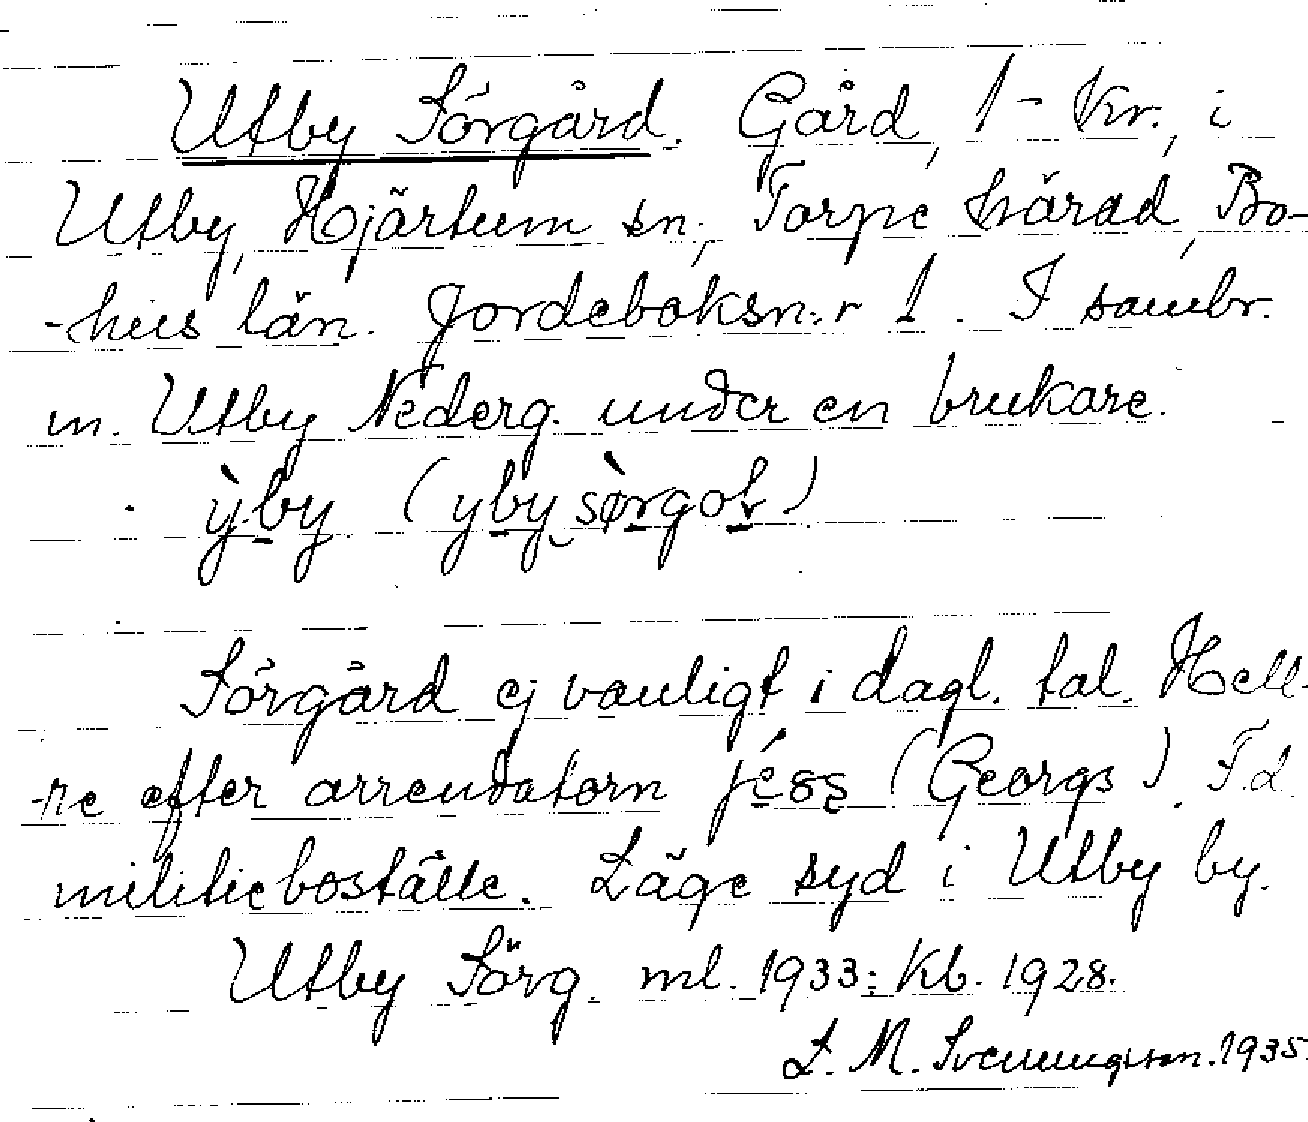 Utby Sörgård. Gård, 1 - Kr., i
Utby, Hjärtum sn., Torpe härad, Bo-
-hus län. Jordeboksn:r 1. I sambr.
m. Utby Nederg. under en brukare.
ỳby (yby sørgoɽ)
Sörgård ej vanligt i dagl. tal. Hell-
-re efter arrendatorn (Georgs). F.d.
militieboställe. Läge syd i Utby by.
Utby Sörg. ml. 1933: Kb. 1928.
L. M. Svenungsson. 1935.